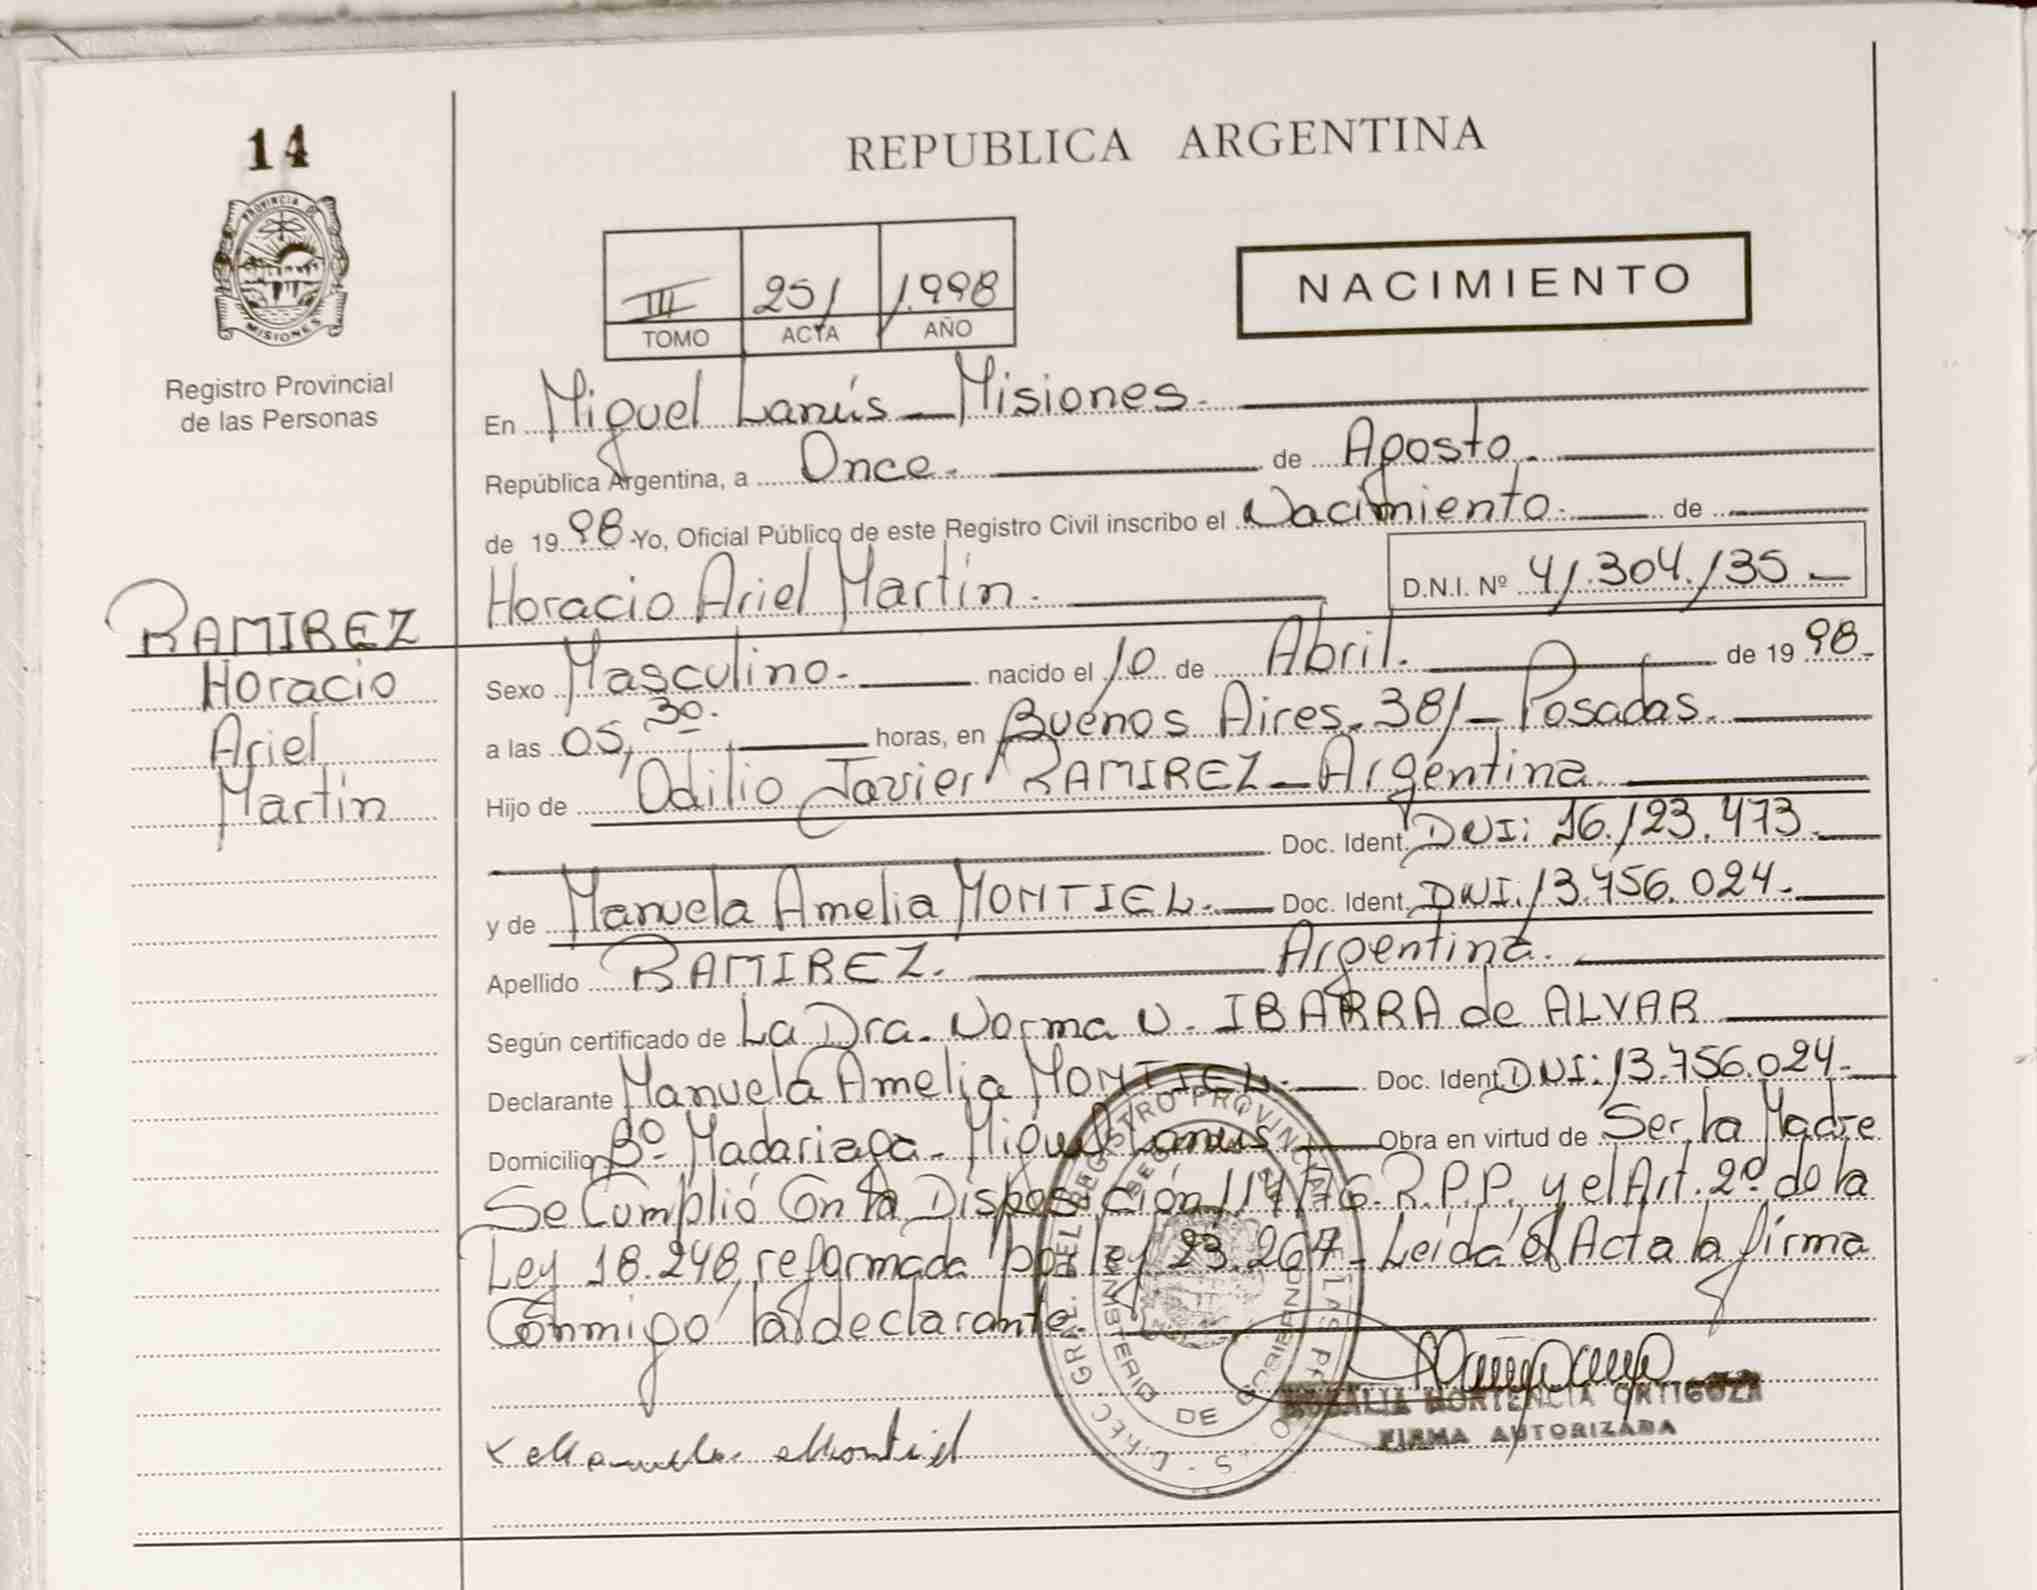 14
PROVINCIA DE
MISIONES
Registro Provincial
de las Personas
REPUBLICA ARGENTINA
III 251 1.998
TOMO ACTA AÑO
NACIMIENTO
En Miguel Lanús - Misiones.
República Argentina, a Once. de Agosto.
de 1998. Yo, Oficial Público de este Registro Civil inscribo el Nacimiento. de
Horacio Ariel Martín. D.N.I. Nº 41.304.135
RAMIREZ
Horacio
Ariel
Martín
Sexo Masculino. nacido el 10 de Abril. de 1998.
a las 05,30. horas, en Buenos Aires. 381 - Posadas.
Hijo de Odilio Javier RAMIREZ - Argentina
Doc. Ident. DNI: 16.123.473.
y de Manuela Amelia MONTIEL. Doc. Ident. DNI. 13.756.024.
Apellido RAMIREZ. Argentina.
Según certificado de La Dra. Norma N. IBARRA de ALVAR
Declarante Manuela Amelia MONTIEL. Doc. Ident. DNI: 13.756.024.
Domicilio Bº Madariaga - Miguel Lanús Obra en virtud de Ser la Madre
Se Cumplió Con la Disposición R.P.P. y el Art. 2º de la
Ley 18.248, reformada por ley 23.264 - Leída el Acta la firma
Conmigo la declarante.
Manuela Montiel
REGISTRO PROVINCIAL DE LAS
MINISTERIO DE GOBIERNO
ROSALIA HORTENCIA ORTIGOZA
FIRMA AUTORIZADA